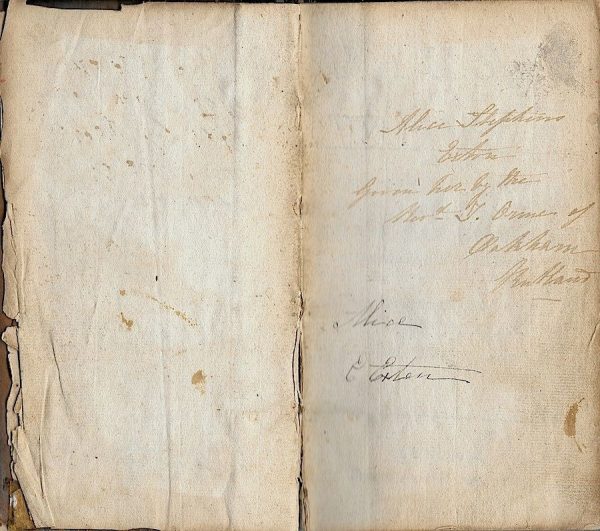 Alice Stephens
Exton
Given her by the
Revd. T. Orme of
Oakham
Rutland
Alice
E Exton